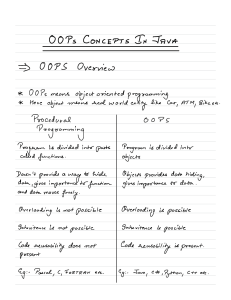 OOPs CONCEPTS IN JAVA
⇒ OOPS Overview
* OOPs means object oriented programming
* Here object means real world entity like Car, ATM, Bike etc.
Procedural
Programming
OOPS
Program is divided into parts
called functions.
Program is divided into
objects
Doesn't provide a way to hide
data, gives importance to function
and data moves freely.
Objects provides data hiding,
gives importance to data.
Overloading is not possible
Overloading is possible
Inheritance is not possible
Inheritance is possible
Code reusability does not
present
Code reusability is present.
Eg:- Pascal, C, FORTRAN etc.
Eg:- Java, C#, Python, C++ etc.